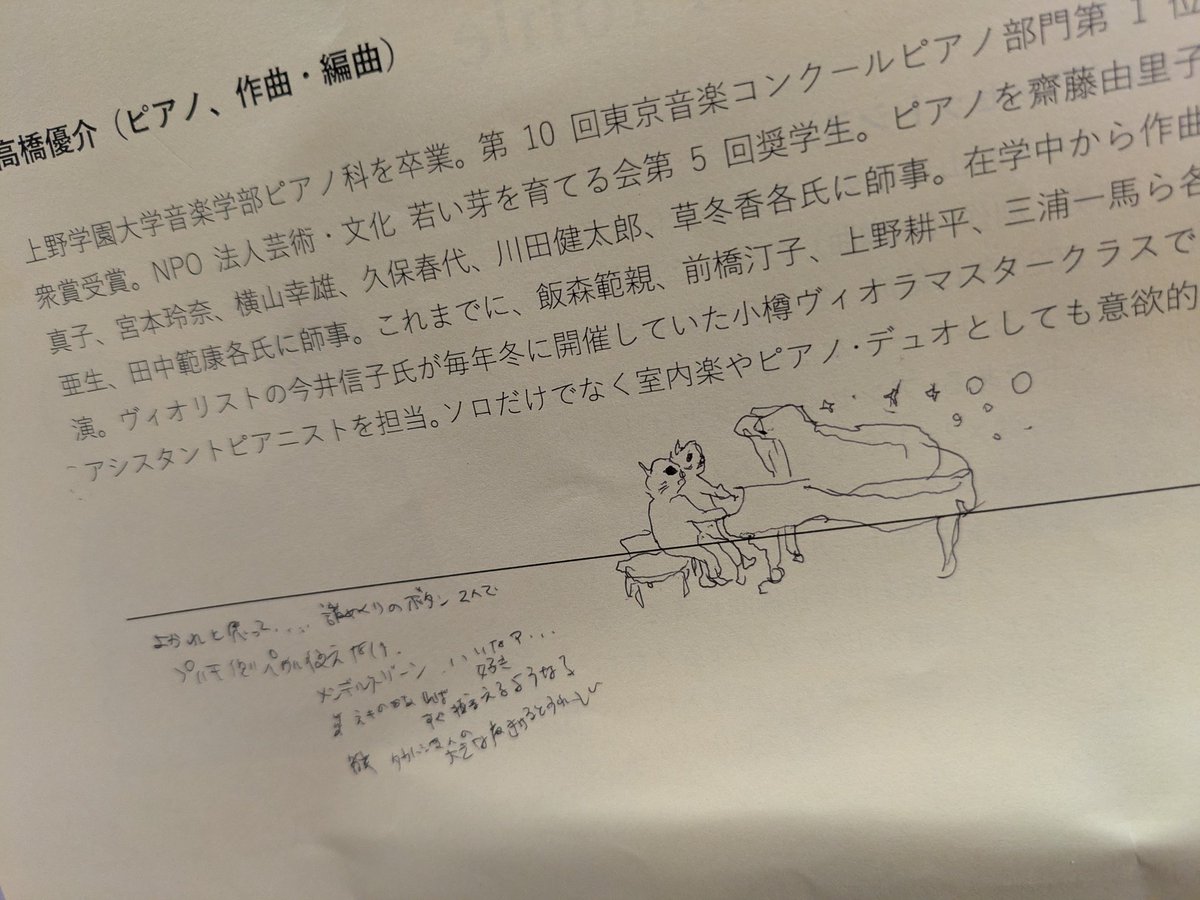 高橋優介（ピアノ、作曲・編曲）
上野学園大学音楽学部ピアノ科を卒業。第 10 回東京音楽コンクールピアノ部門第 1 位
衆賞受賞。NPO 法人芸術・文化 若い芽を育てる会第 5 回奨学生。ピアノを齋藤由里子
真子、宮本玲奈、横山幸雄、久保春代、川田健太郎、草冬香各氏に師事。在学中から作曲
亜生、田中範康各氏に師事。これまでに、飯森範親、前橋汀子、上野耕平、三浦一馬ら各
演。ヴィオリストの今井信子氏が毎年冬に開催していた小樽ヴィオラマスタークラスで
アシスタントピアニストを担当。ソロだけでなく室内楽やピアノ・デュオとしても意欲的
よかれと思って.... 譜めくりのボタン 2人で
メンデルスゾーン いいなア...
好き